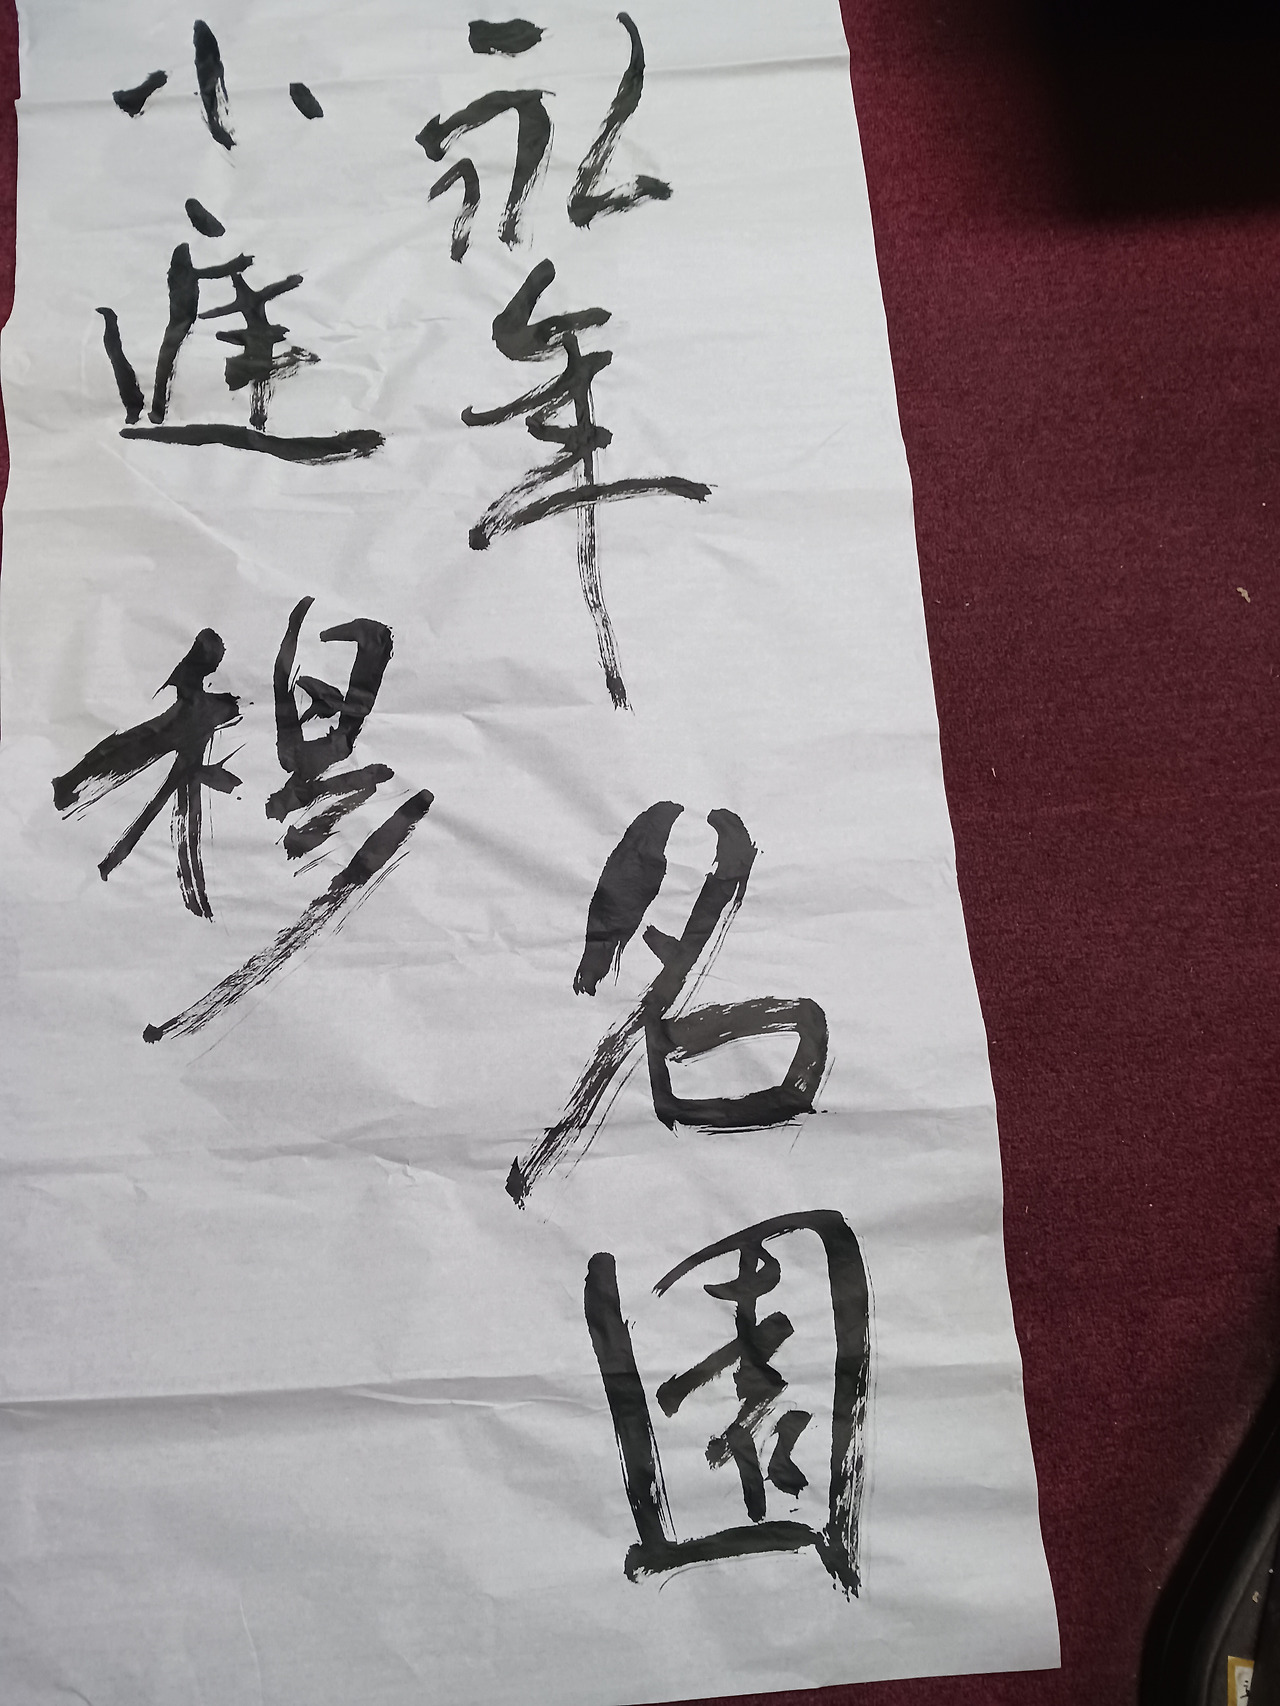 永年名園
小庭穆